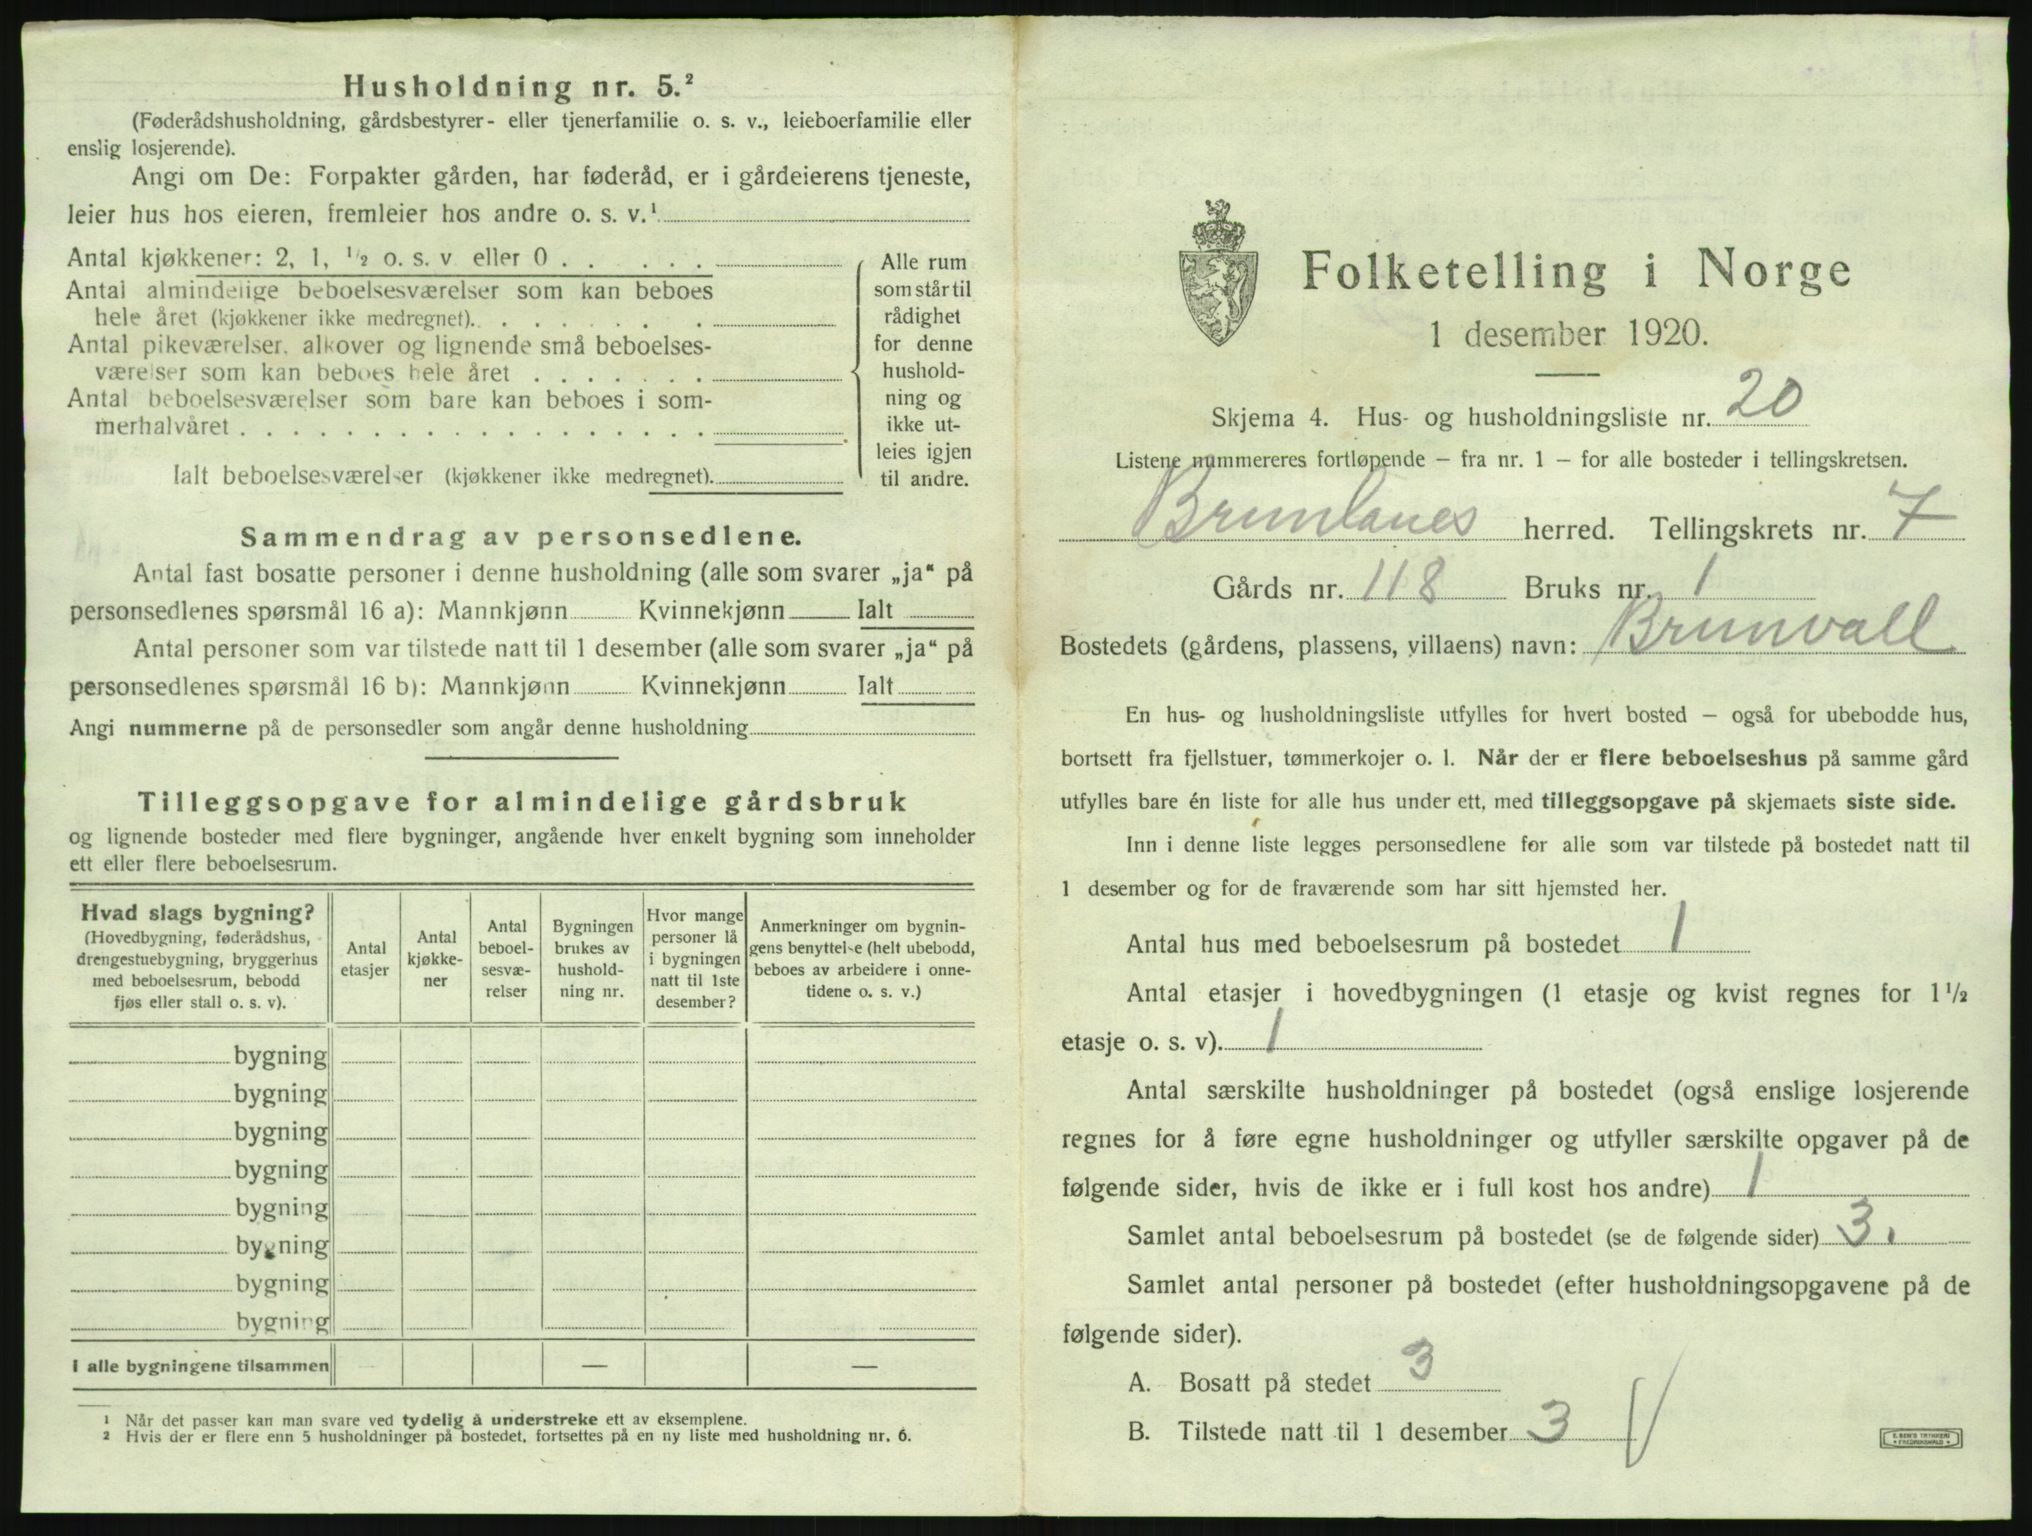 Husholdning nr. 5.²
(Føderådshusholdning, gårdsbestyrer- eller tjenerfamilie o. s. v., leieboerfamilie eller
enslig losjerende).
Angi om De: Forpakter gården, har føderåd, er i gårdeierens tjeneste,
leier hus hos eieren, fremleier hos andre o. s. v.¹
Antal kjøkkener: 2, 1, ½ o. s. v eller 0 . . . . . .
Antal almindelige beboelsesværelser som kan beboes
hele året (kjøkkener ikke medregnet). . . . . . . .
Antal pikeværelser, alkover og lignende små beboelses-
værelser som kan beboes hele året . . . . . . .
Antal beboelsesværelser som bare kan beboes i som-
merhalvåret . . . . . . . . . . . . . . . . . .
Ialt beboelsesværelser (kjøkkener ikke medregnet).
Alle rum
som står til
rådighet
for denne
hushold-
ning og
ikke ut-
leies igjen
til andre.
Sammendrag av personsedlene.
Antal fast bosatte personer i denne husholdning (alle som svarer „ja“ på
personsedlenes spørsmål 16 a): Mannkjønn Kvinnekjønn Ialt
Antal personer som var tilstede natt til 1 desember (alle som svarer „ja“ på
personsedlenes spørsmål 16 b): Mannkjønn Kvinnekjønn Ialt
Angi nummerne på de personsedler som angår denne husholdning
Tilleggsopgave for almindelige gårdsbruk
og lignende bosteder med flere bygninger, angående hver enkelt bygning som inneholder
ett eller flere beboelsesrum.
Hvad slags bygning?
(Hovedbygning, føderådshus,
drengestuebygning, bryggerhus
med beboelsesrum, bebodd
fjøs eller stall o. s. v).
Antal
etasjer
Antal
kjøkke-
ner
Antal
beboel-
sesvæ-
relser
Bygningen
brukes av
hushold-
ning nr.
Hvor mange
personer lå
i bygningen
natt til 1ste
desember?
Anmerkninger om bygnin-
gens benyttelse (helt ubebodd,
beboes av arbeidere i onne-
tidene o. s. v.)
bygning
bygning
bygning
bygning
bygning
bygning
bygning
bygning
I alle bygningene tilsammen — —
¹ Når det passer kan man svare ved tydelig å understreke ett av eksemplene.
² Hvis der er flere enn 5 husholdninger på bostedet, fortsettes på en ny liste med husholdning nr. 6.
Folketelling i Norge
1 desember 1920.
Skjema 4. Hus- og husholdningsliste nr. 20
Listene nummereres fortløpende – fra nr. 1 – for alle bosteder i tellingskretsen.
Brunlanes herred. Tellingskrets nr. 7
Gårds nr. 118 Bruks nr. 1
Bostedets (gårdens, plassens, villaens) navn: Brunvall
En hus- og husholdningsliste utfylles for hvert bosted – også for ubebodde hus,
bortsett fra fjellstuer, tømmerkojer o. l. Når der er flere beboelseshus på samme gård
utfylles bare én liste for alle hus under ett, med tilleggsopgave på skjemaets siste side.
Inn i denne liste legges personsedlene for alle som var tilstede på bostedet natt til
1 desember og for de fraværende som har sitt hjemsted her.
Antal hus med beboelsesrum på bostedet 1
Antal etasjer i hovedbygningen (1 etasje og kvist regnes for 1 ½
etasje o. s. v). 1
Antal særskilte husholdninger på bostedet (også enslige losjerende
regnes for å føre egne husholdninger og utfyller særskilte opgaver på de
følgende sider, hvis de ikke er i full kost hos andre) 1
Samlet antal beboelsesrum på bostedet (se de følgende sider) 3.
Samlet antal personer på bostedet (efter husholdningsopgavene på de
følgende sider).
A. Bosatt på stedet 3
B. Tilstede natt til 1 desember 3